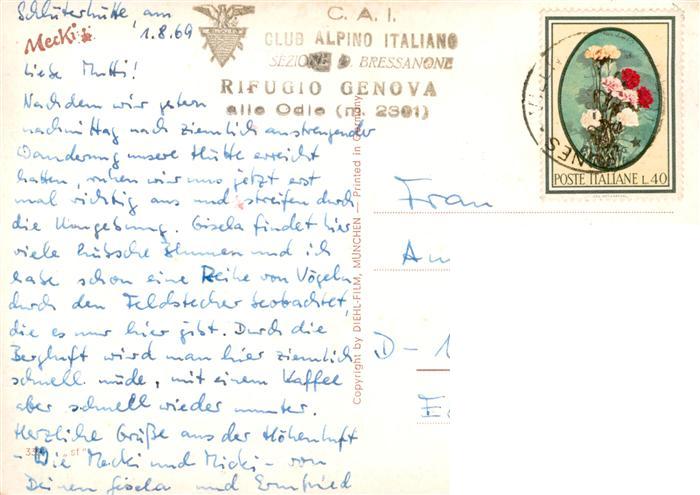 Schlüterhütte, am
1.8.69
Mecki
Liebe Mutti!
Nachdem wir gestern
nachmittag nach ziemlich anstrengender
Wanderung unsere Hütte erreicht
hatten, ruhen wir uns jetzt erst
mal richtig aus und streifen durch
die Umgebung. Gisela findet hier
viele hübsche Blumen und ich
habe schon eine Reihe von Vögeln
durch den Feldstecher beobachtet,
die es nur hier gibt. Durch die
Bergluft wird man hier ziemlich
schnell müde, mit einem Kaffee
aber schnell wieder munter.
Herzliche Grüße aus der Höhenluft
- Die Mecki und Micki - von
Deinen Gisela und Ermfried
C. A. I.
CLUB ALPINO ITALIANO
SEZIONE D. BRESSANONE
RIFUGIO GENOVA
alle Odle (m. 2301)
Copyright by DIEHL-FILM, MÜNCHEN — Printed in Germany
POSTE ITALIANE L. 40
Frau
D - 1